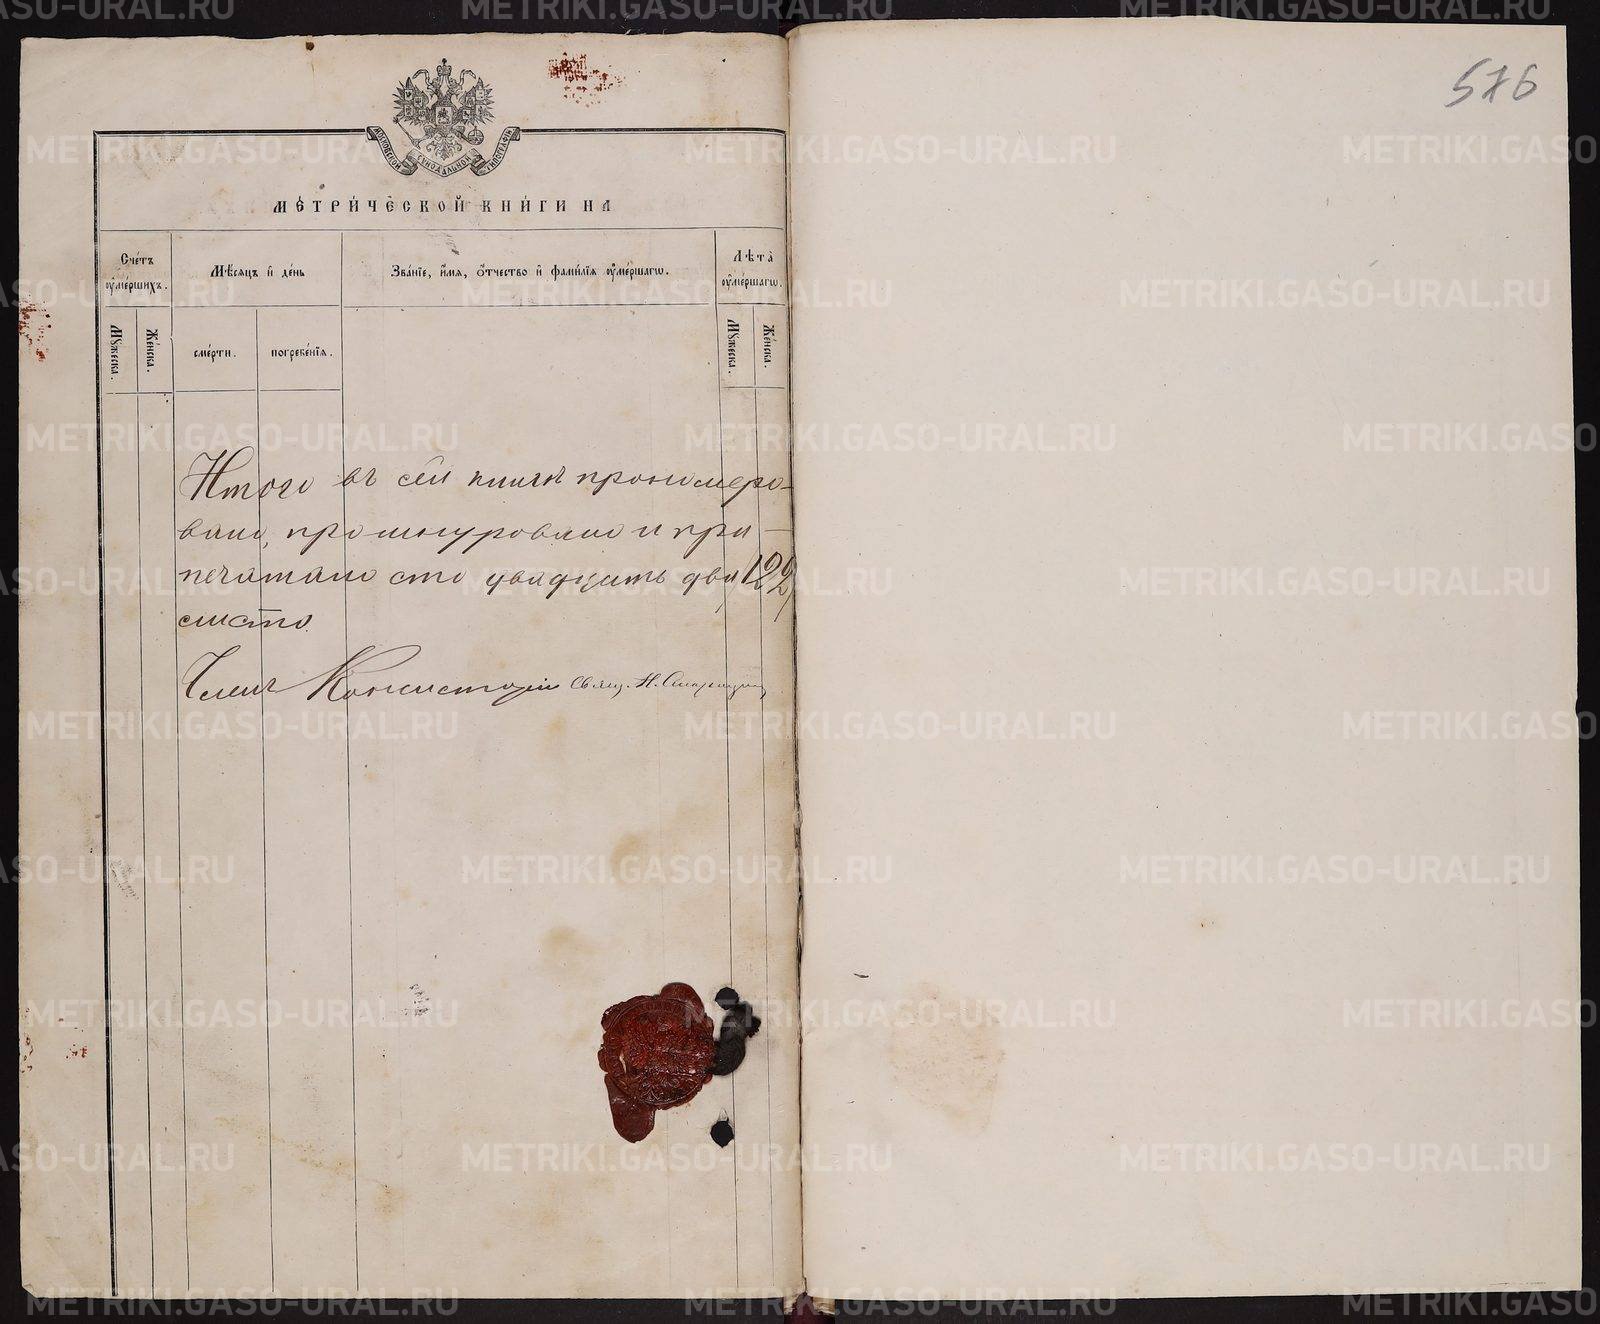 МОСКОВСКОЙ СѴНОДАЛЬНОЙ ТИПОГРАФІИ
МЕТРИ́ЧЕСКОЙ КНИ́ГИ НА
Сче́тъ ᲂу҆ме́ршихъ.
Мѣ́сяцъ и҆ де́нь
Зва́нїе, и҆́мя, ѻ҆́тчество и҆ фами́лїя ᲂу҆ме́ршагѡ.
Лѣ́та ᲂу҆ме́ршагѡ.
Мꙋ́жеска.
Же́нска.
сме́рти.
погребе́нїя.
Мꙋ́жеска.
Же́нска.
Итого въ сей книгѣ прономеро-
вано, прошнуровано и при-
печатано сто двадцать два /122/
листо
Членъ Консисторіи Свящ. Н.
576
METRIKI.GASO-URAL.RU